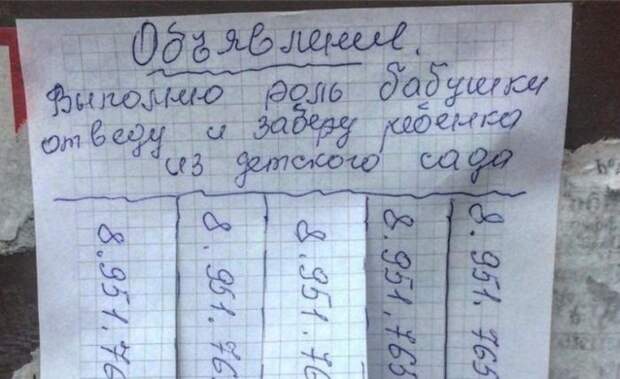 Объявление.
Выполню роль бабушки
отведу и заберу ребенка
из детского сада
8.951.76
8.951.76
8.951.76
8.951.765
8.951.765